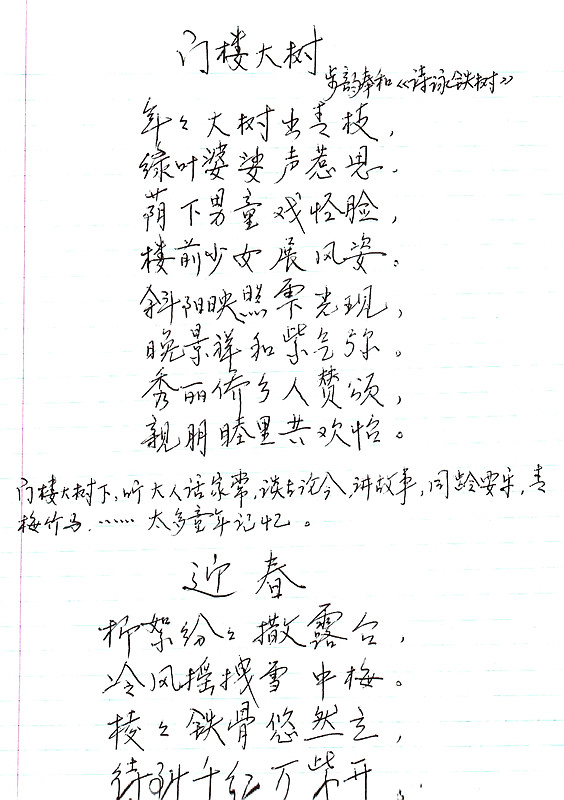 门楼大树
步韵奉和《诗咏铁树》
年々大树出青枝，
绿叶婆娑声惹思．
荫下男童戏怪脸，
楼前少女展风姿。
斜阳映照霞光现，
晚景祥和紫气弥。
秀丽侨乡人赞颂，
亲朋睦里共欢怡。
门楼大树下，听大人话家常，谈古论今，讲故事，同龄耍乐，青
梅竹马……太多童年记忆。
迎春
柳絮纷々撒露台，
冷风摇拽雪中梅。
棱々铁骨悠然立，
待到千红万紫开．